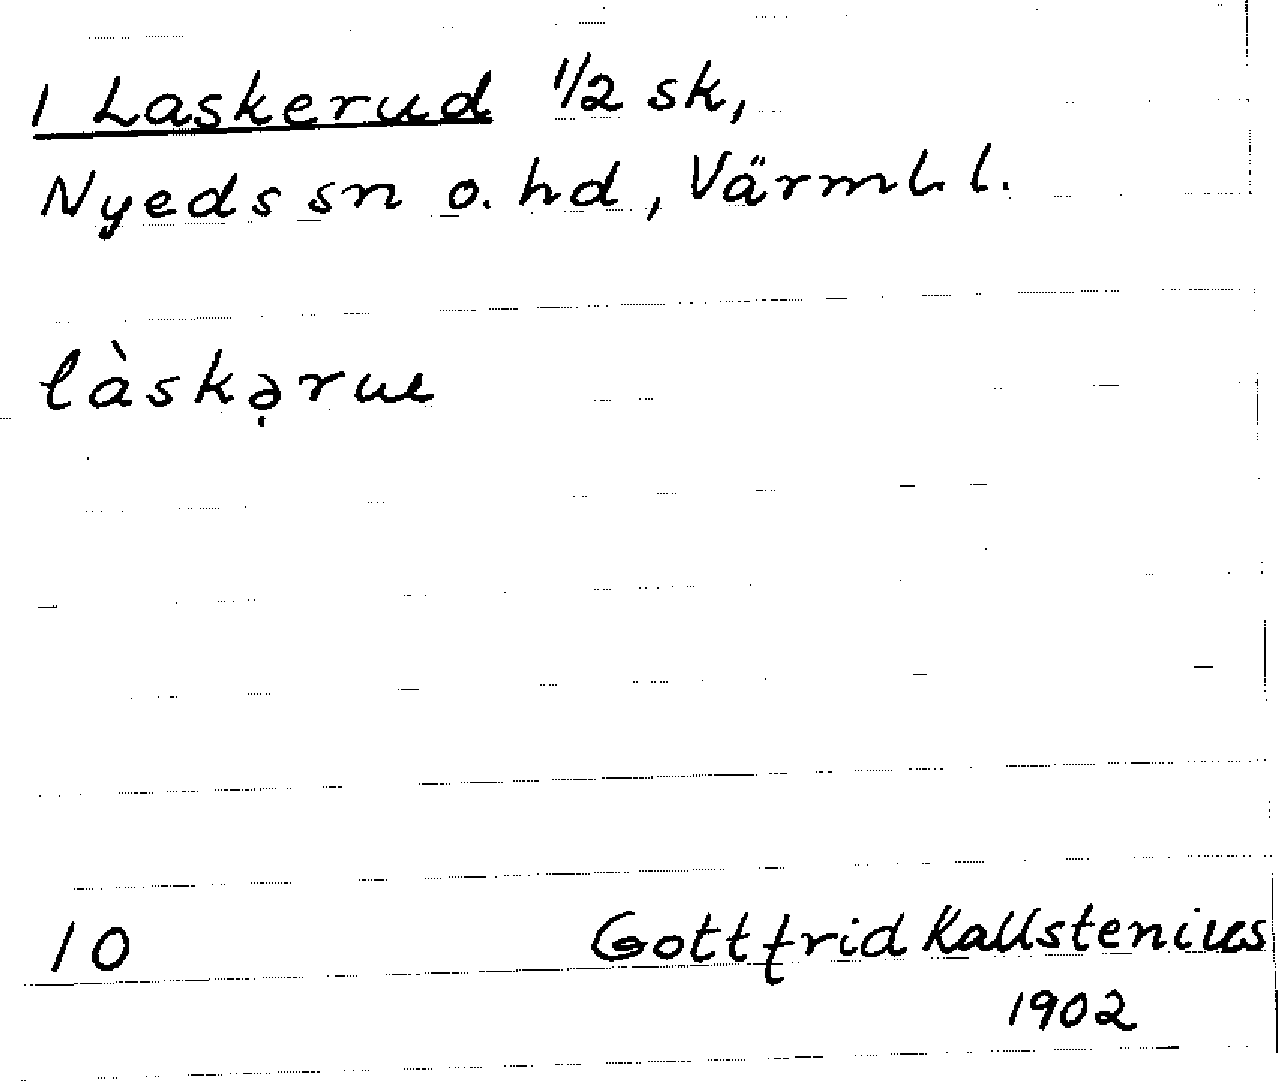 1 Laskerud 1/2 sk,
Nyeds sn o. hd, Värml. l.
làskə̣ruɩ
10 Gottfrid Kallstenius
1902